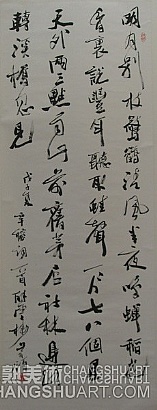 明月别枝驚鵲清風半夜鳴蟬稻花
香裏說豐年聽取蛙聲一片七八個星
天外兩三點雨山前舊茅店社林邊路
轉溪橋忽見
戊子夏
辛稼詞一首
熟美術
CHANGSHUART